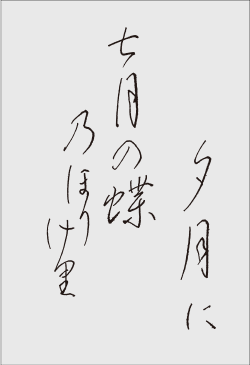 夕月に
七月の蝶
乃ほりけ里